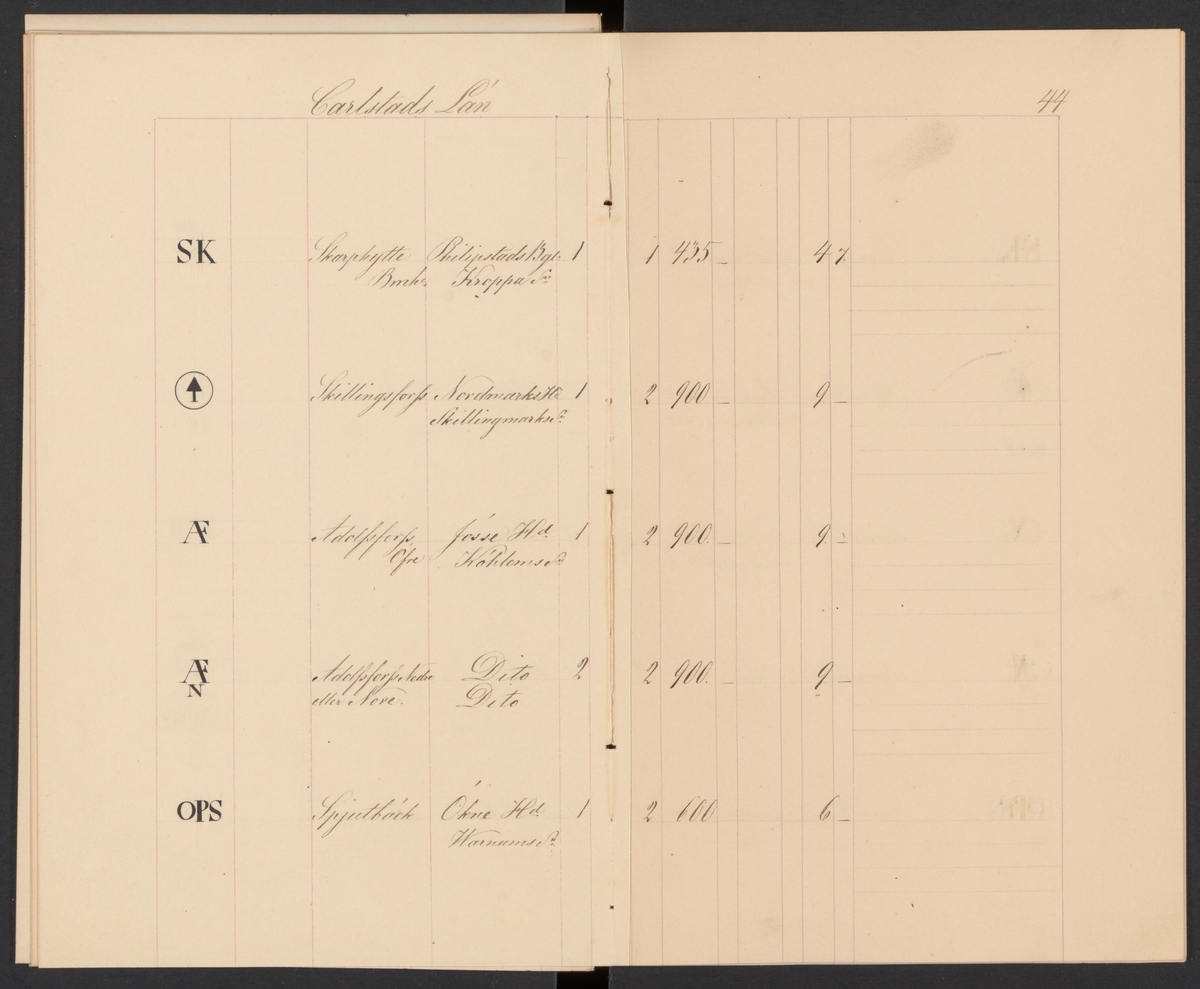 Carlstads Län
44
SK Skarphytte Philipstads Bgl. 1 1 435 _ 4 7
Bruk Kroppa Sn
Skillingsforss Nordmarks Hd 1 2 900 _ 9 _
Skillingmarks Sn
AF Adolfsforss Jösse Hd 1 2 900. _ 9 _
Öfre Köhlems Sn
AF Adolfsforss Nedre Dito 2 2 900. _ 9 _
N eller Nore. Dito
OPS Spjutbäck Ökne Hd 1 2 600 6 _
Warnums Sn